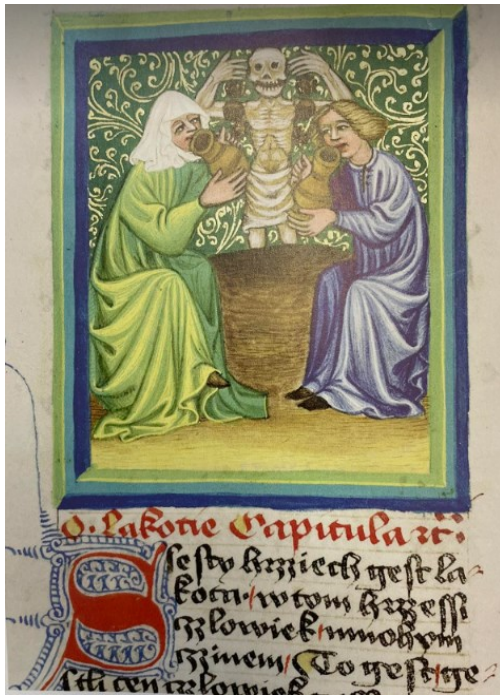 O lakotie Capitula
Sesty hrziech gest la-
kota w tom hrzessi
czlowiek mnohym
czinem To gest ge-
stli ten czlowiek